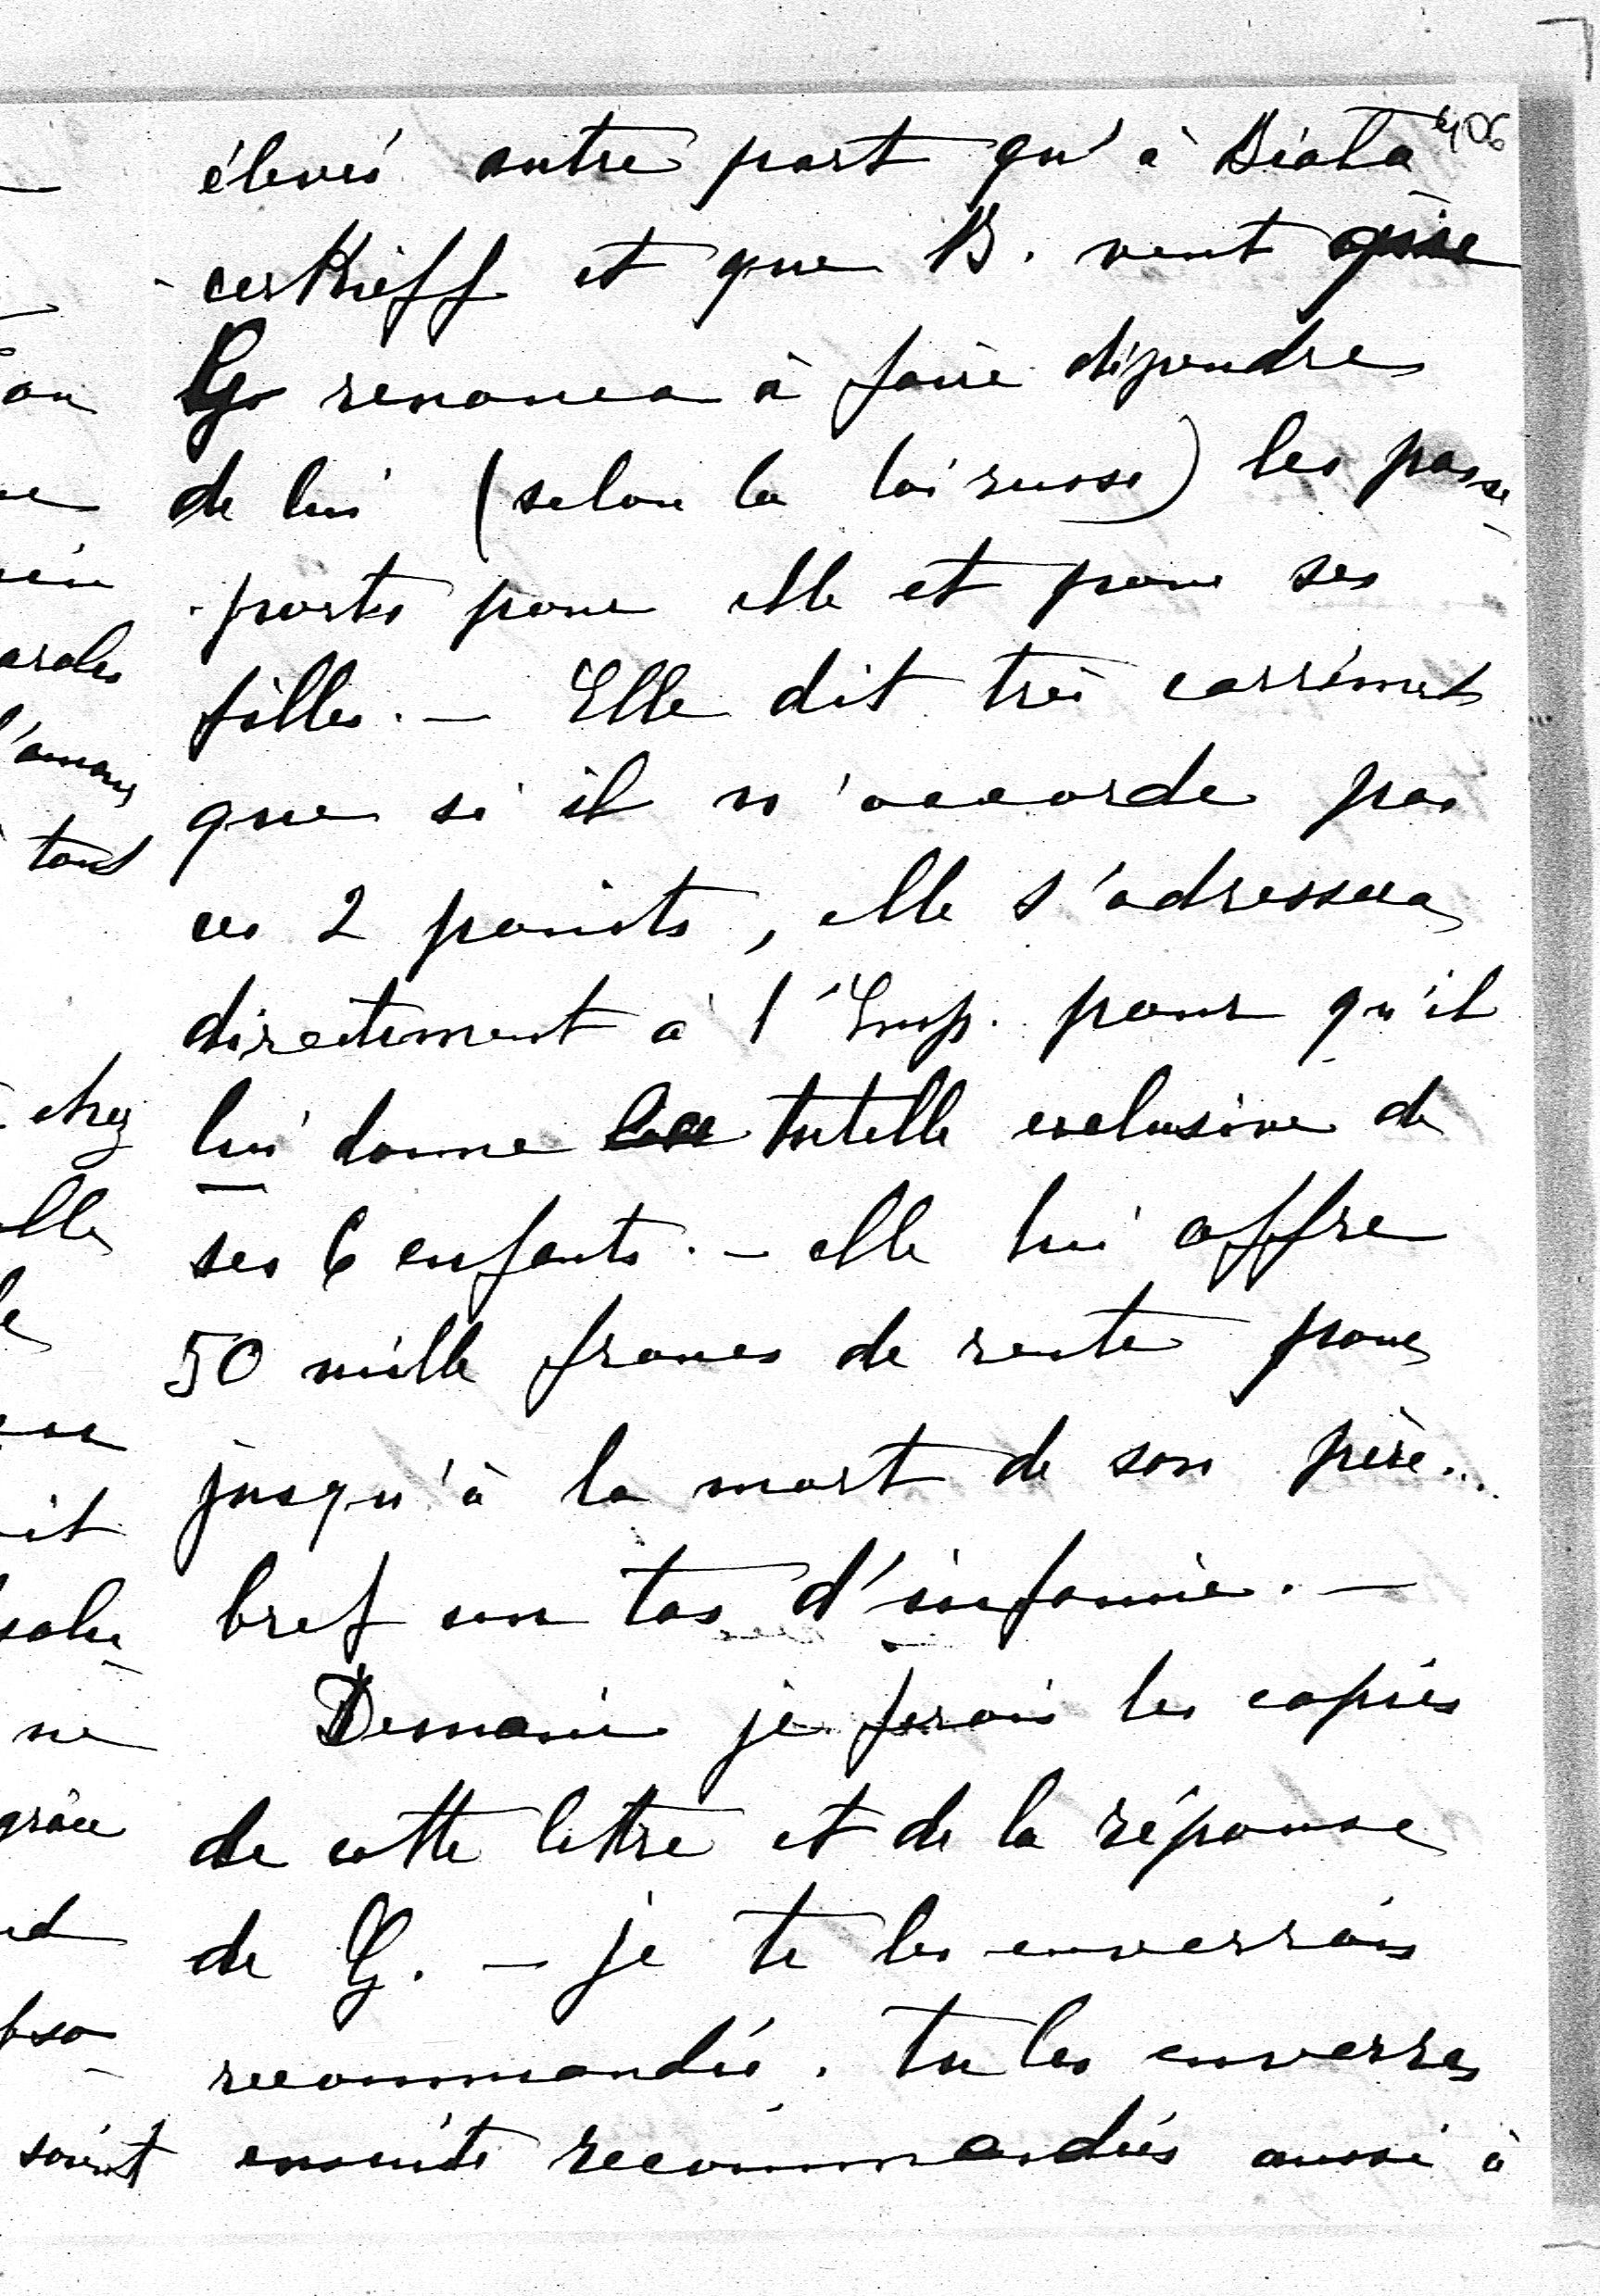 406
élevés autre part qu'à Biala
-cerkieff et que B. veut que
G. renonce à faire dépendre
de lui (selon la loi russe) les passe-
-ports pour elle et pour ses
filles. — Elle dit très carrément
que si il n'accorde pas
ces 2 points, elle s'adressera
directement à l'Emp. pour qu'il
lui donne la tutelle exclusive de
ses 6 enfants. — elle lui offre
50 mille francs de rente pour
jusqu'à la mort de son père...
bref un tas d'infamie. —
Demain je ferais les copies
de cette lettre et de la réponse
de G. — je te les enverrais
recommandés. tu les enverras
ensuite recommandés aussi à